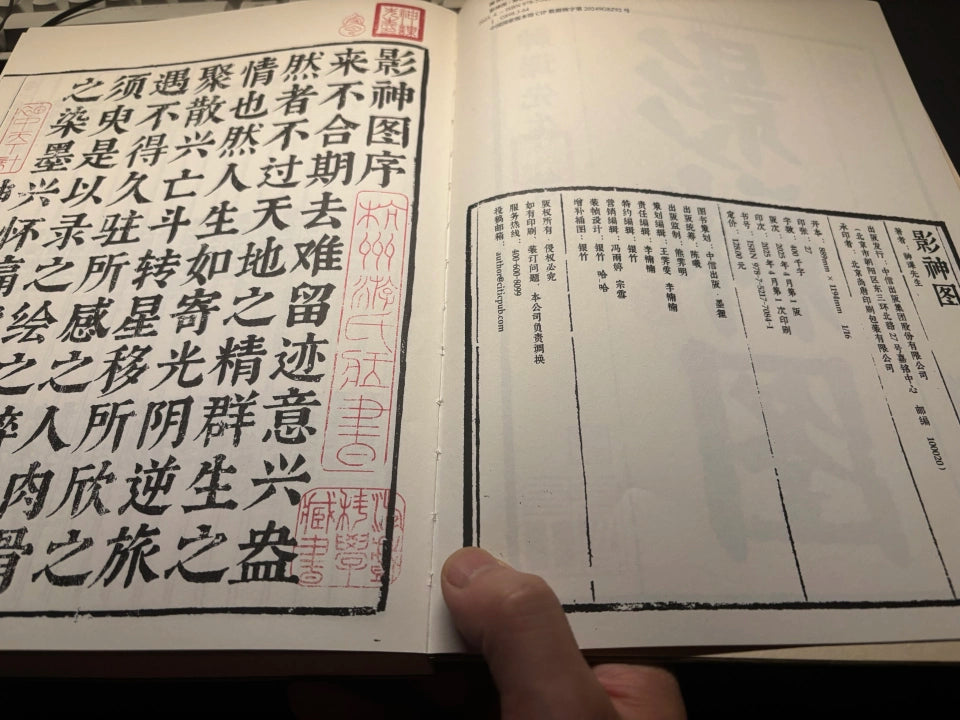 影神图
著者:神谭先生
出版发行:中信出版集团股份有限公司
(北京市朝阳区东三环北路27号嘉铭中心 邮编 100020)
承印者:北京尚唐印刷包装有限公司
开本:889mm×1194mm 1/16
字数:400千字
版次:2025年4月第一版
印次:2025年4月第一次印刷
书号:ISBN 978-7-5217-7084-1
图书策划:中信出版 墨狸
出版监制:熊霁明
策划编辑:王霁雯 李楠楠
责任编辑:李楠楠
特约编辑:银竹
营销编辑:冯雨婷 宗霖
装帧设计:银竹 哈哈
增补插图:银竹
版权所有 侵权必究
如有印刷、装订问题,本公司负责调换
服务热线:400-600-8099
投稿邮箱:author@citicpub.com
影神图序
来不合期去难留迹意兴盎
然者不过天地之精群生之
情也然人生如寄光阴逆旅
聚散兴亡斗转星移所欣之
遇不得久驻所感之人肉骨
须臾是以录之绘之醉
之染墨兴怀